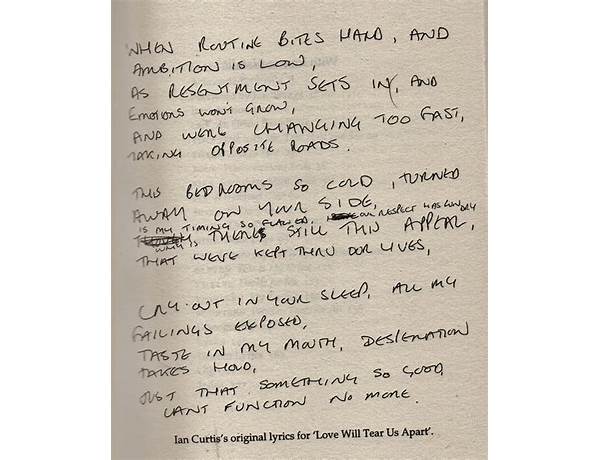 WHEN ROUTINE BITES HARD, AND
AMBITION IS LOW,
AS RESENTMENT SETS IN, AND
EMOTIONS WON'T GROW,
AND WERE CHANGING TOO FAST,
TAKING OPPOSITE ROADS.
THIS BEDROOMS SO COLD, TURNED
AWAY ON YOUR SIDE,
IS MY TIMING SO FLAWED. OUR RESPECT HAS RUN DRY
THERES STILL THIS APPEAL,
THAT WEVE KEPT THRU OUR LIVES,
CRY OUT IN YOUR SLEEP, ALL MY
FAILINGS EXPOSED,
TASTE IN MY MOUTH, DESPERATION
TAKES HOLD,
JUST THAT SOMETHING SO GOOD,
CANT FUNCTION NO MORE.
Ian Curtis's original lyrics for 'Love Will Tear Us Apart'.